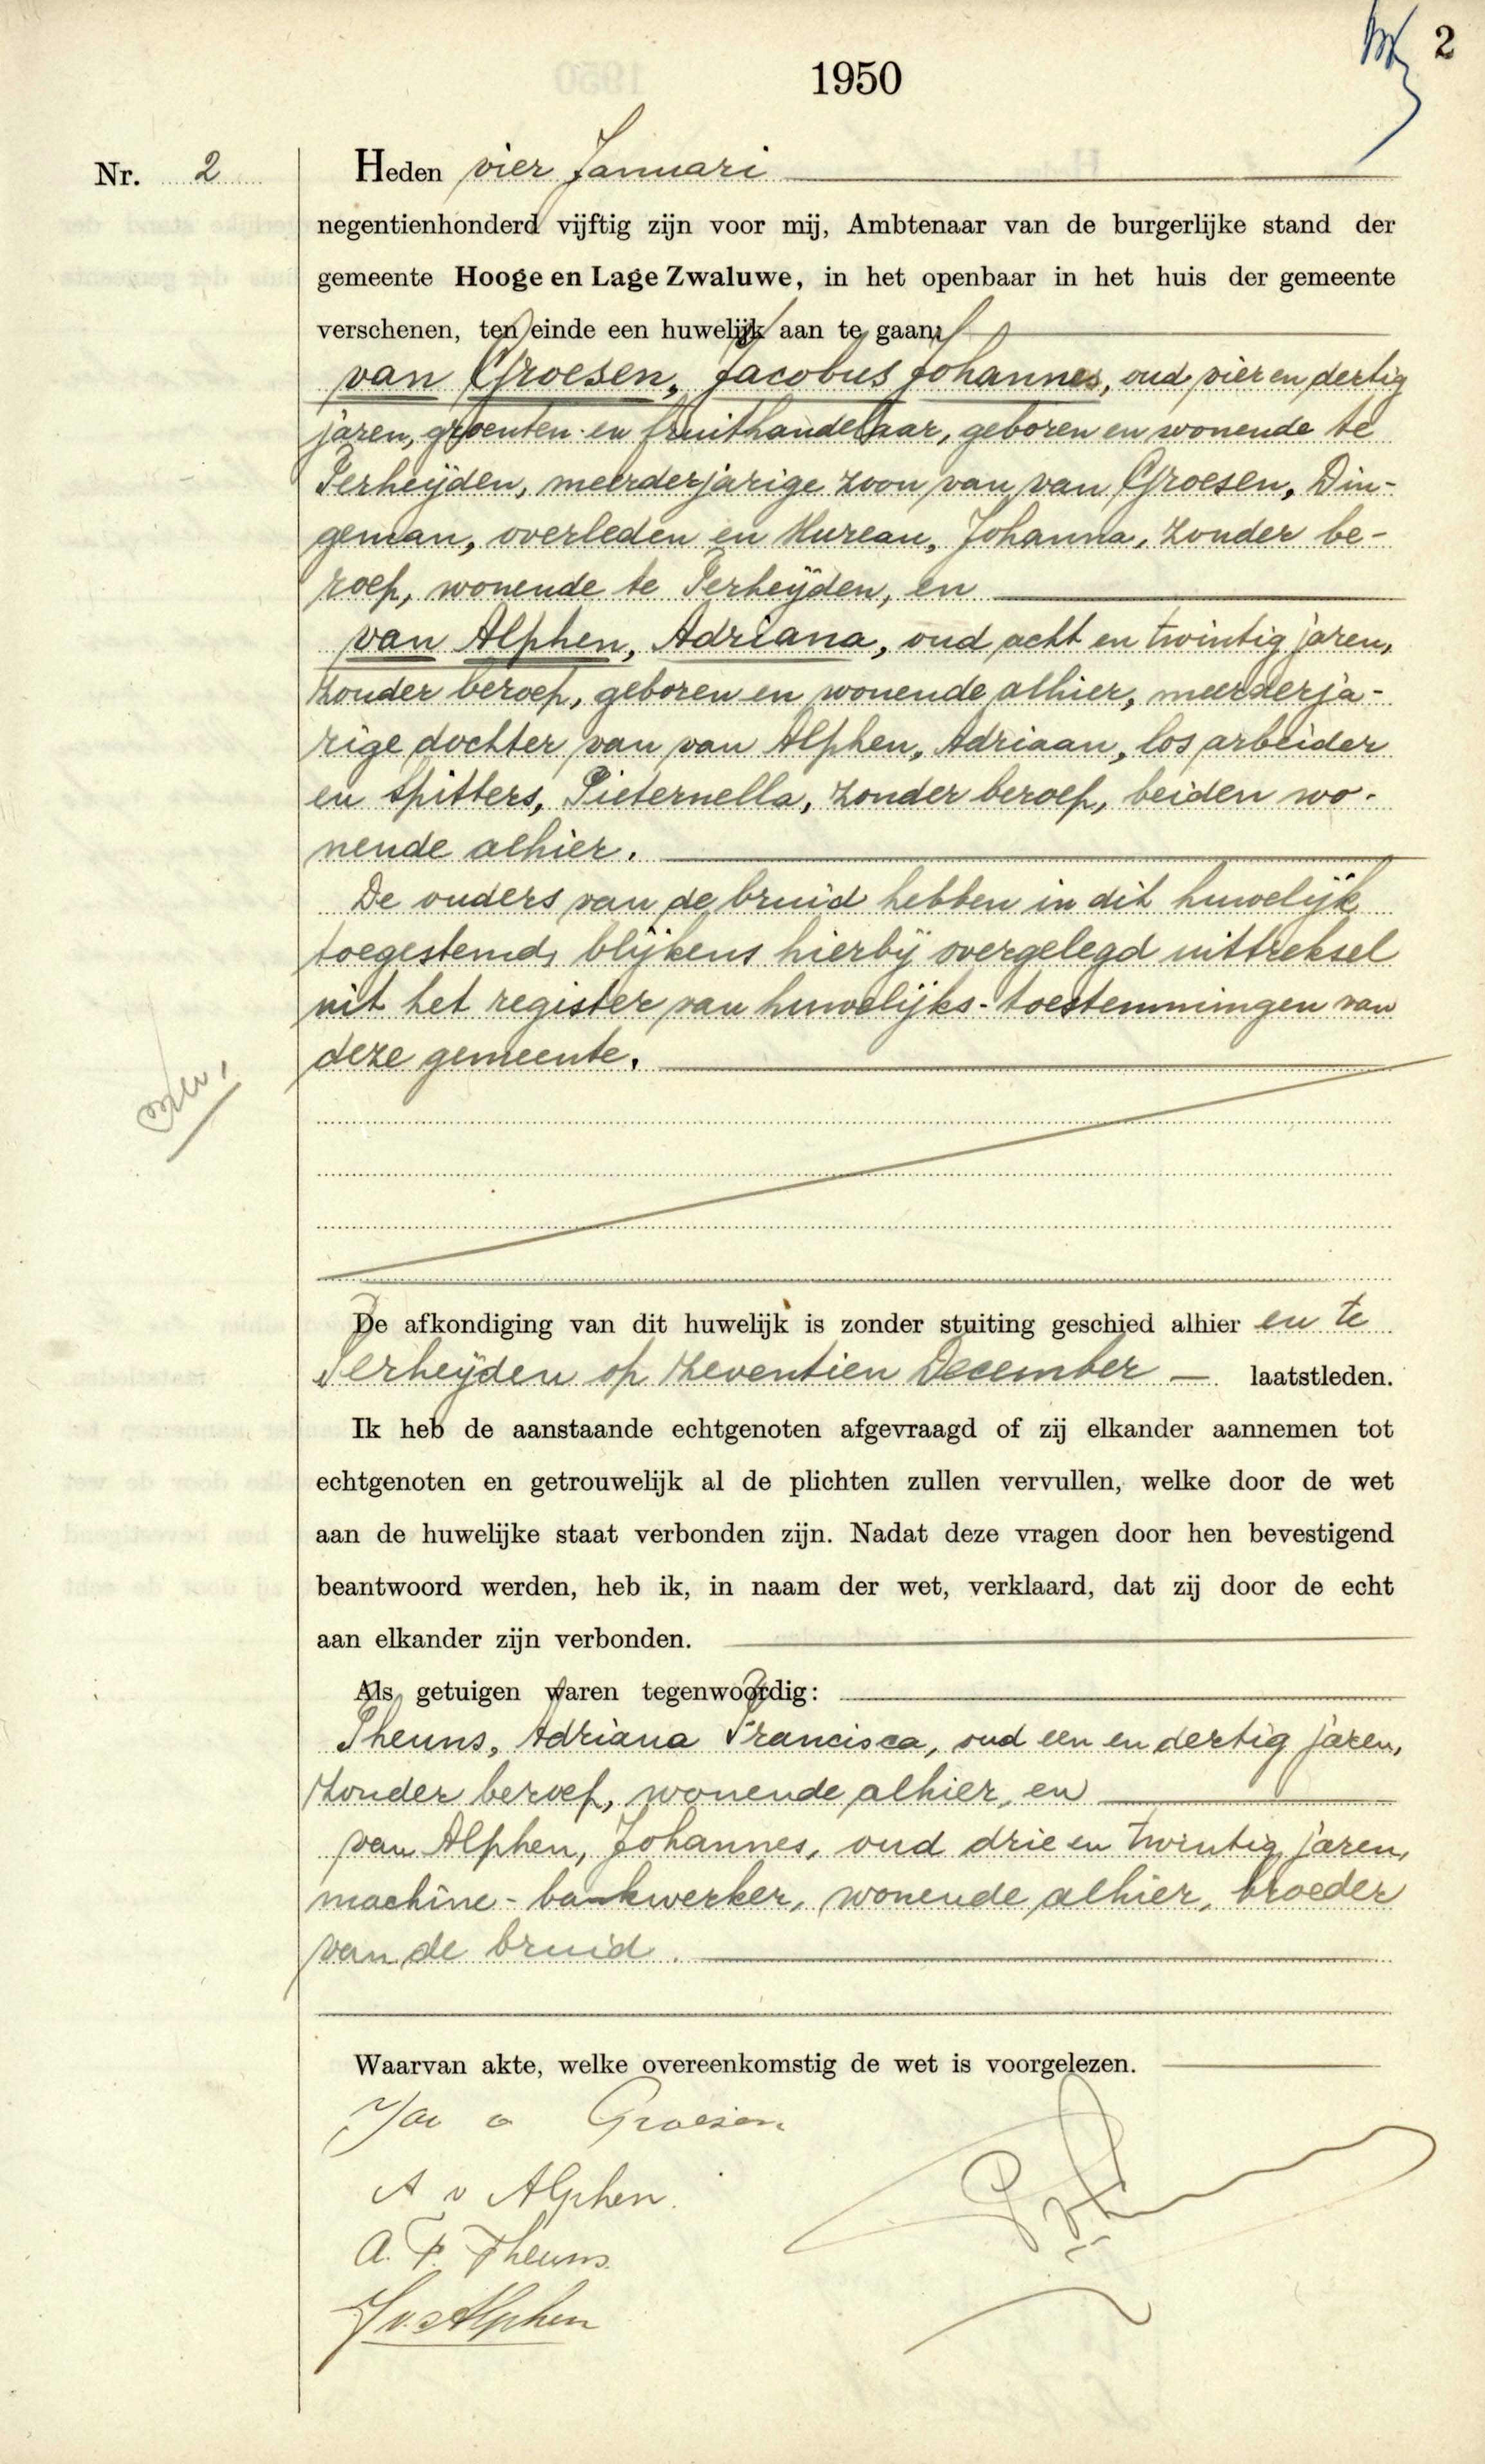 2
1950
Nr. 2
Heden vier Januari
negentienhonderd vijftig zijn voor mij, Ambtenaar van de burgerlijke stand der
gemeente Hooge en Lage Zwaluwe, in het openbaar in het huis der gemeente
verschenen, ten einde een huwelijk aan te gaan:
van Groesen, Jacobus Johannes, oud vier en dertig
jaren, groenten- en fruithandelaar, geboren en wonende te
Terheijden, meerderjarige zoon van van Groesen, Din-
geman, overleden en Hurean, Johanna, zonder be-
roep, wonende te Terheijden, en
van Alphen, Adriana, oud acht en twintig jaren,
zonder beroep, geboren en wonende alhier, meerderja-
rige dochter van van Alphen, Adriaan, los arbeider
en Spitters, Pieternella, zonder beroep, beiden wo-
nende alhier.
De ouders van de bruid hebben in dit huwelijk
toegestemd, blijkens hierbij overgelegd uittreksel
uit het register van huwelijks-toestemmingen van
deze gemeente.
De afkondiging van dit huwelijk is zonder stuiting geschied alhier en te
Terheijden op zeventien December laatstleden.
Ik heb de aanstaande echtgenoten afgevraagd of zij elkander aannemen tot
echtgenoten en getrouwelijk al de plichten zullen vervullen, welke door de wet
aan de huwelijke staat verbonden zijn. Nadat deze vragen door hen bevestigend
beantwoord werden, heb ik, in naam der wet, verklaard, dat zij door de echt
aan elkander zijn verbonden.
Als getuigen waren tegenwoordig:
Theuns, Adriana Francisca, oud een en dertig jaren,
zonder beroep, wonende alhier, en
van Alphen, Johannes, oud drie en twintig jaren,
machine-bankwerker, wonende alhier, broeder
van de bruid.
Waarvan akte, welke overeenkomstig de wet is voorgelezen.
Groesen
A v Alphen.
A. F. Theuns.
J v. Alphen